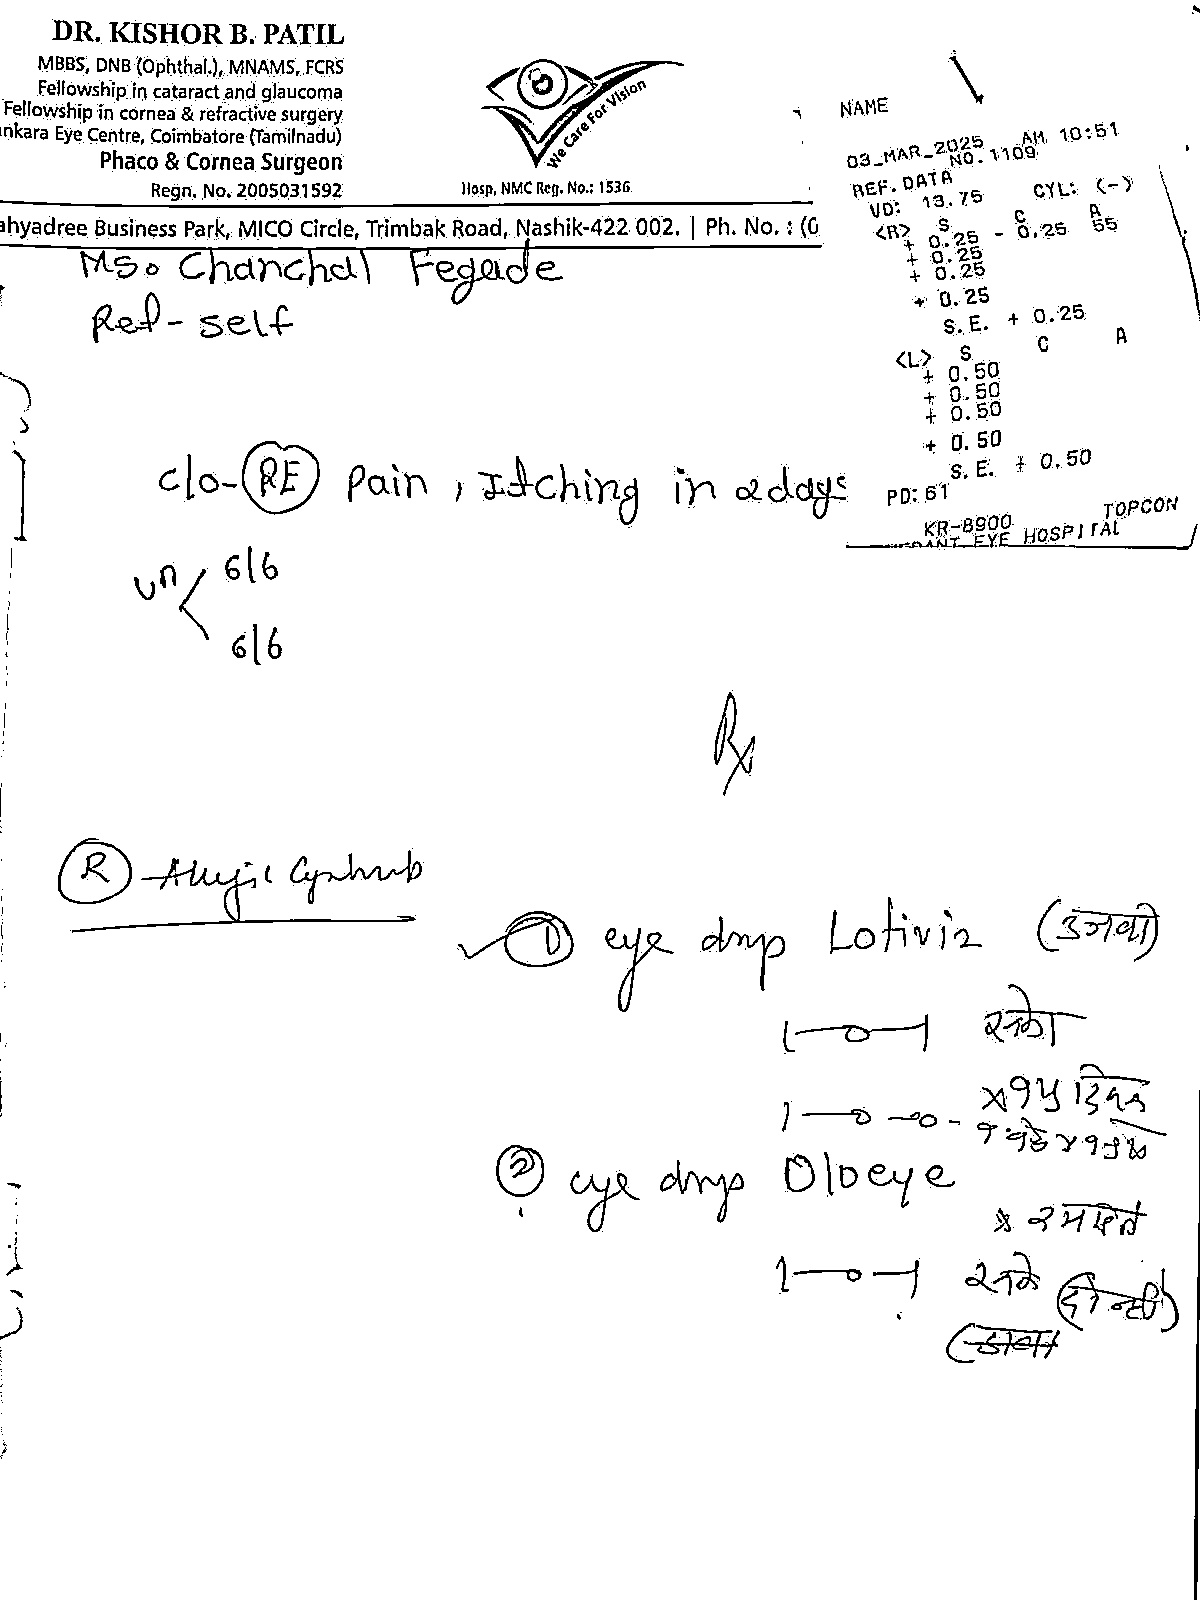 DR. KISHOR B. PATIL
MBBS, DNB (Ophthal.), MNAMS, FCRS
Fellowship in cataract and glaucoma
Fellowship in cornea & refractive surgery
nkara Eye Centre, Coimbatore (Tamilnadu)
Phaco & Cornea Surgeon
Regn. No. 2005031592
We Care For Vision
Hosp. NMC Reg. No.: 1536
ahyadree Business Park, MICO Circle, Trimbak Road, Nashik-422 002. | Ph. No. : (0
NAME
03_MAR_2025 AM 10:51
NO. 1109
REF. DATA
VD: 13.75 CYL: (-)
<R> S C A
+ 0.25 - 0.25 55
+ 0.25
+ 0.25
+ 0.25
S.E. + 0.25
<L> S C A
+ 0.50
+ 0.50
+ 0.50
+ 0.50
S.E. + 0.50
PD: 61
TOPCON
KR-8900
EYE HOSPITAL
Ms. Chanchal Fegade
Ref - self
c/o - RE pain, Itching in 2 days
Un < 6/6
6/6
Rx
R - Allergic
1 eye drop Lotiviz (उजवी)
1—0—1
x १५ दिवस
1—0—0-
2 eye drops Oloeye
x २ महिने
1—0—1 (दोन्ही)